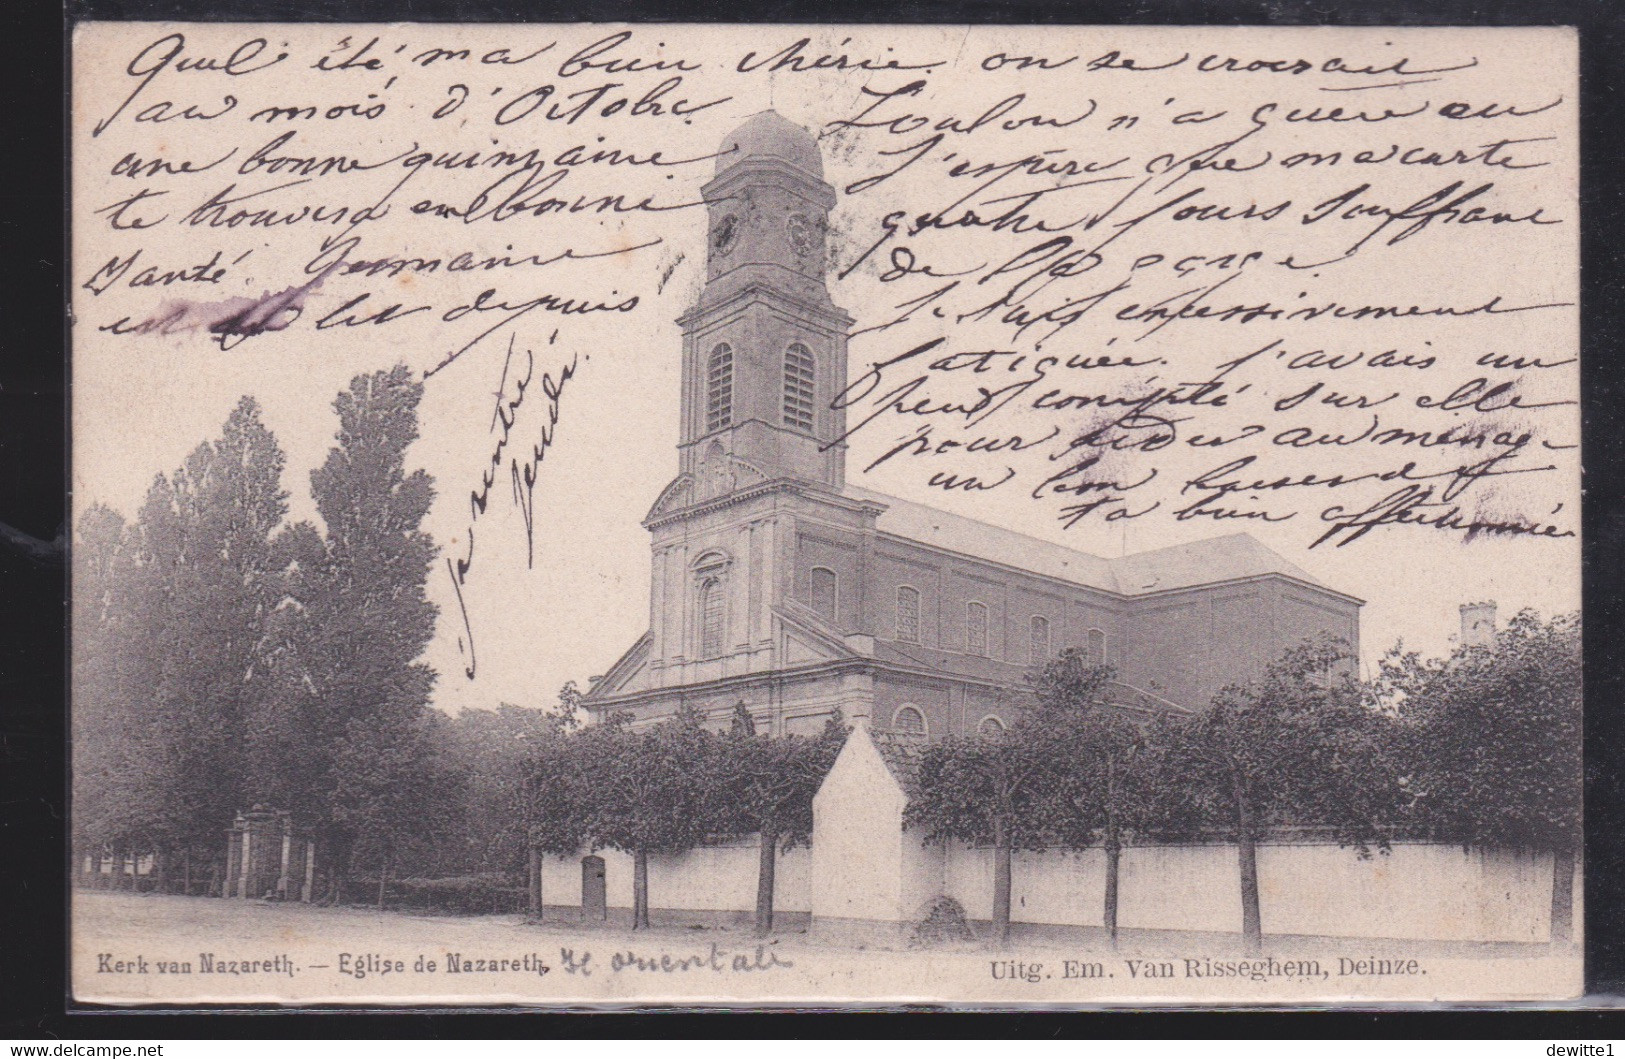 Quel été ma bien chérie. on se croirait
au mois d'Octobre. Loulou n'a guère eu
une bonne quinzaine J'espère que ma carte
te trouvera en bonne
santé. Germaine
est au lit depuis
quatre jours souffrant
de la gorge.
Je suis excessivement
fatiguée. J'avais un
peu compté sur elle
pour aider au ménage
un bon baiser de
ta bien affectionnée
je rentre
jeudi.
Kerk van Nazareth. — Eglise de Nazareth, Fl orientale
Uitg. Em. Van Risseghem, Deinze.
dewitte1